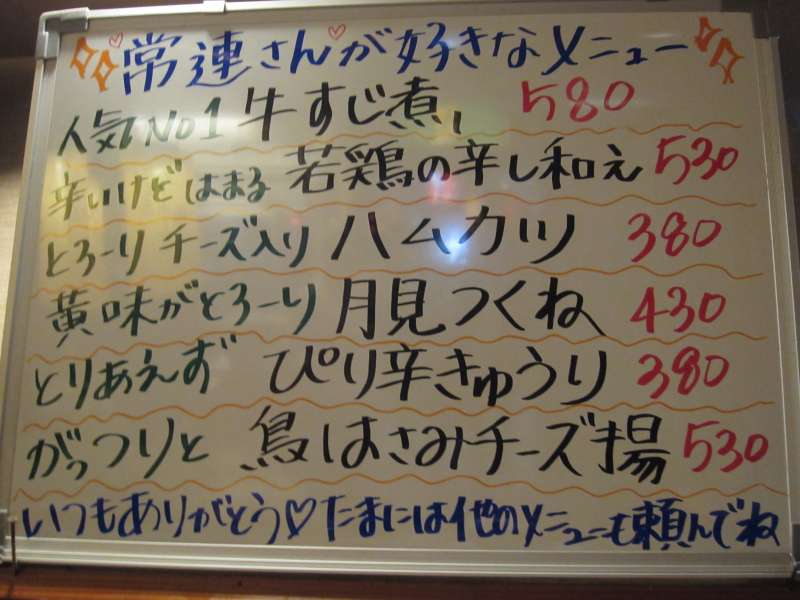 常連さんが好きなメニュー
人気No1 牛すじ煮し 580
辛いけどはまる 若鶏の辛し和え 530
とろーりチーズ入り ハムカツ 380
黄味がとろーり 月見つくね 430
とりあえず ぴり辛きゅうり 380
がっつりと 鳥はさみチーズ揚 530
いつもありがとう♡たまには他のメニューも頼んでね